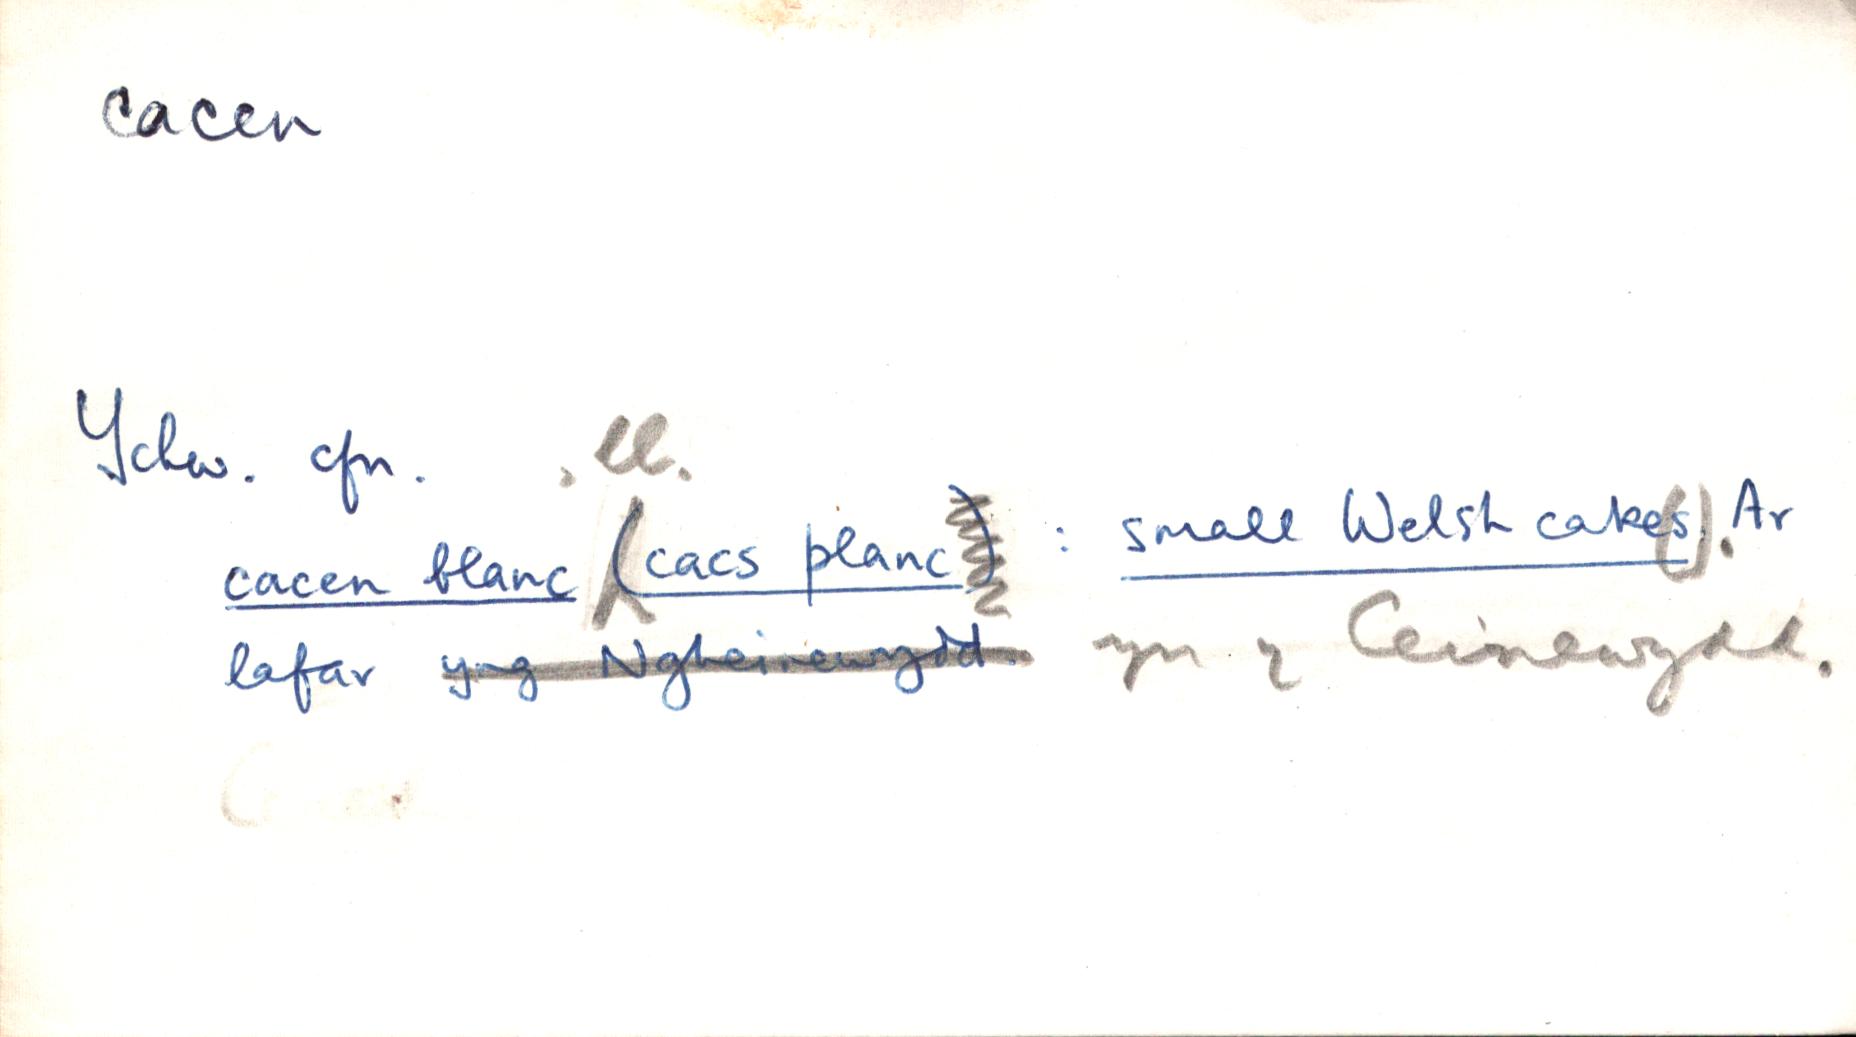 cacen
Ychw. cfn.
, ll.
cacen blanc (cacs planc) : small Welsh cake(s). Ar
lafar yng Ngheinewydd. yn y Ceinewydd.